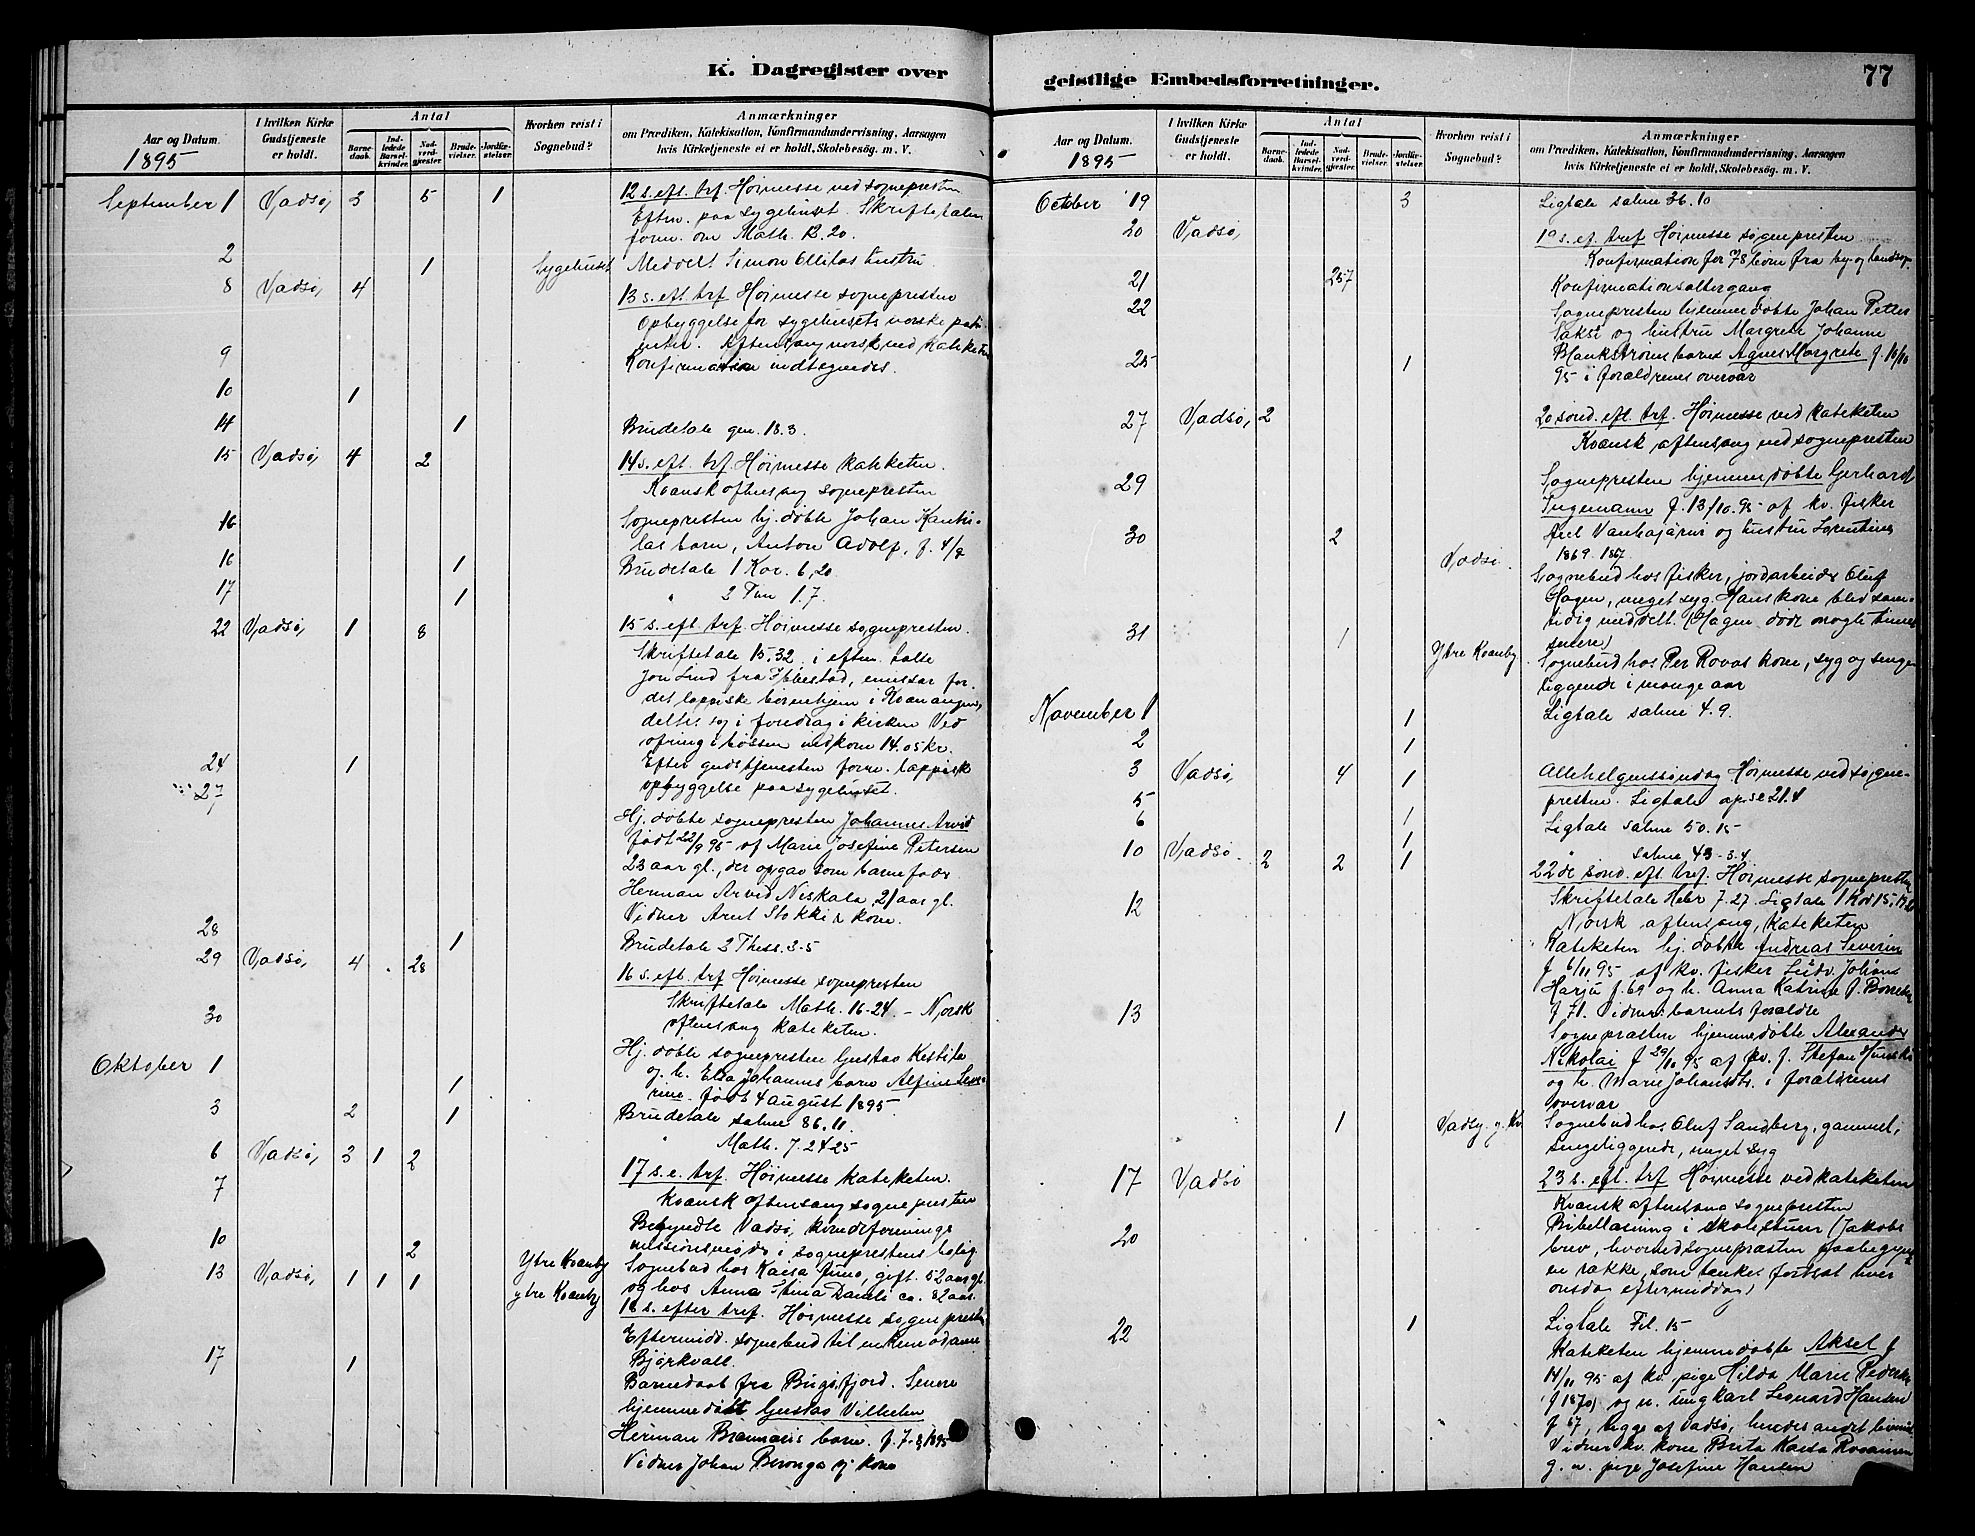 K. Dagregister over
Aar og Datum.
1895
I hvilken Kirke Gudstjeneste er holdt.
Antal
Barne-daab.
Ind-ledede Barsel-kvinder.
Nad-verd-gjester.
Brude-vielser.
Jordfæ-stelser.
Hvorhen reist i Sognebud?
Anmærkninger
om Prædiken, Katekisation, Konfirmandundervisning, Aarsagen
hvis Kirketjeneste ei er holdt, Skolebesög. m. V.
September 1 Vadsø, 3 5 1 12 s. eft. trf. Høimesse ved sognepresten
Eftm. paa sygehuset. Skriftetalen
form. om Math. 12.20.
2 1 Sygehuset Meddelt Simon hustru
8 Vadsø, 4 13 s. eft. trf Høimesse sognepresten
Opbyggelse for sygehusets norske pati-
enter. Aftensang norsk ved kateketen
9 Konfirmation indtegnedes.
10 1
14 1 Brudetale gen. 18.3.
15 Vadsø, 4 2 14 s. eft. trf. Høimesse kateketen.
Kvansk aftensang sognepresten
16 Sognepresten hj. døbte Johan
las barn, Anton Adolf, f. 4/9
16 1 Brudetale 1 Kor. 6,20
17 1 " 2 Tim 1.7.
22 Vadsø, 1 8 15 s. eft trf. Høimesse sognepresten.
Skriftetale 15.32. i eftm. talte
Jon Lind fra Ibbestad, emissær for
det lappiske børnehjem i Kvænangen,
deltes og i foredrag i kirken Ved
ofring i bøssen indkom 14.05 kr.
24 1 Efter gudstjenesten forr. lappisk
opbyggelse paa sygehuset.
27 Hj. døbte sognepresten Johannes Arvid
født 22/9 95 af Marie Josefine Petersen
23 aar gl., der opgav som barnefader
Herman Arvid Niskala, 21 aar gl.
Vidner Arnt Stokki & kone.
28 1 Brudetale 2 Thess. 3-5
29 Vadsø, 4 28 16 s. eft. trf Høimesse sognepresten
Skriftetale Math. 16-24. – Norsk
30 aftensang kateketen.
Hj. døbte sognepresten Gustav
Oktober 1 og h. Elsa Johannes barn Alfine Seve-
1 rine. født 4 august 1895.
3 2 1 Brudetale salme 86.11.
" Math. 7.24-25
6 Vadsø, 3 1 2 17 s. e. trf. Høimesse kateketen.
7 Kvansk aftensang sognepresten
Begyndte Vadsø, kvindeforenings
missionsmøder i sogneprestens bolig
10 2 Ytre Kvanby Sognebud hos Kaisa gift. 52 aar gl.
og hos Anna Stina Daniels ca. 82 aar.
13 Vadsø, 1 1 1 ytre Kvanby 18 s. efter tref. Høimesse sognepresten
Eftermidd. sognebud til enkemadame
Bjørkvall.
17 1 Barnedaab fra Bugøfjord. Senere
hjemmedøbt Gustav Vilhelm
Herman barn. f. 7-8 1895
Vidner Johan Beronga og kone
geistlige Embedsforretninger.
77
Aar og Datum.
1895
I hvilken Kirke Gudstjeneste er holdt.
Antal
Barne-daab.
Ind-ledede Barsel-kvinder.
Nad-verd-gjester.
Brude-vielser.
Jordfæ-stelser.
Hvorhen reist i Sognebud?
Anmærkninger
om Prædiken, Katekisation, Konfirmandundervisning, Aarsagen
hvis Kirketjeneste ei er holdt, Skolebesög. m. V.
October 19 3 Ligtale salme 36.10
20 Vadsø, 19 s. ef. tref Høimesse sognepresten
Konfirmation for 78 børn fra by og landsogn
21 257 Konfirmationsaltergang
22 Sognepresten hjemmedøbte Johan Petter
Saksi og hustru Margrete Johanne
Blankstrøms barn Agnes Margrete f. 10/10
25 1 95 i forældrenes overvær
27 Vadsø, 2 20 sønd. eft. trf. Høimesse ved kateketen
Kvænsk aftensang ved sognepresten
29 Sognepresten hjemmedøbte Gerhard
Ingemann f. 13/10.95 af kv. fisker
30 2 Axel og hustru Lorentine
1869. 1867.
Vadsø. Sognebud hos fisker, jordarbeider Oluf
Hagen, meget syg. Hans kone blev sam-
tidig meddelt. (Hagen døde nogle timer
31 1 senere)
Ytre Kvanby. Sognebud hos Per Rovas kone, syg og senge-
liggende i mange aar
November 1 1 Ligtale salme 4.9.
2 1
3 Vadsø, 4 1 Allehelgenssøndag Høimesse ved sogne-
5 presten. Ligtale ap. se 21.4
6 1 Ligtale salme 50.15
1 " salme 43-3.4
10 Vadsø. 2 2 1 22de sønd. eft. tref. Høimesse sognepresten
Skriftetale Hebr 7.27. Ligtale 1 Kor 15,
12 Norsk aftensang, kateketen
Kateketen hj. døbte Andreas Severin
f 6/11 95 af kv. fisker Ludv. Johans
Harju f. 69 og h. Anna Katrine f.
13 f 71. Vidner: barnets forældre
Sognepræsten hjemmedøbte Alexander
Nikolai f 29/10 95 af kv. f. Stefan
og h. Marie Johansdtr. i forældrenes
overvær
1 Vadsø Sognebud hos Oluf Sandberg, gammel,
sengeliggende, meget syg
17 Vadsø 23 s. eft. trf Høimesse ved kateketen
Kvansk aftensang sognepresten
20 Bibellæsning i skolestuen (Jakobs
brev, hvormed sognepræsten paabegynder
en række, som tænkes fortsat hver
onsdag eftermiddag)
22 1 Ligtale Fil. 15
Kateketen hjemmedøbte Aksel f
14/11 95 af kv. pige Hilda Marie Pedersen
(f 1870) og u. ungkarl Leonard Hansen
f 67, begge af Vadsø, hendes andet
Vidner kv. kone Brita Kaisa
g. n. pige Josefine Hansen